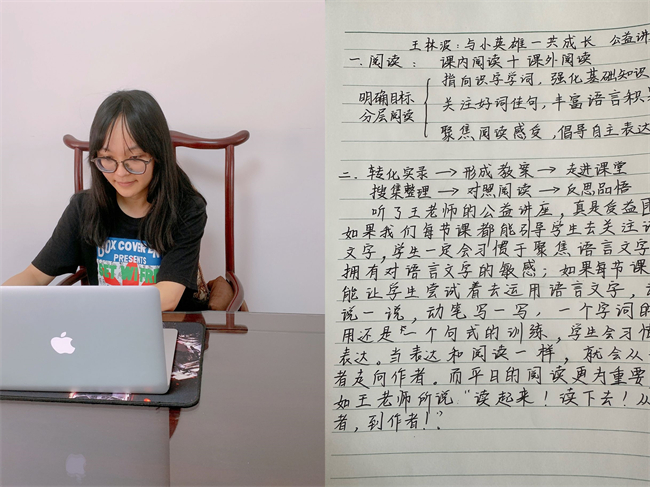 OX COVER
PRESENTS
王林波：与小英雄一共成长 公益讲
一. 阅读： 课内阅读 + 课外阅读
指向识字学词，强化基础知识
明确目标
分层阅读
关注好词佳句，丰富语言积累
聚焦阅读感受，倡导自主表达
二. 转化实录 → 形成教案 → 走进课堂
搜集整理 → 对照阅读 → 反思品悟
听了王老师的公益讲座，真是受益
如果我们每节课都能引导学生去关注
文字，学生一定会习惯于聚焦语言文字
拥有对语言文字的敏感；如果每节课
能让学生尝试着去运用语言文字，
说一说，动笔写一写，一个字词的
用还是一个句式的训练，学生会习惯
表达。当表达和阅读一样，就会从
者走向作者。而平日的阅读更为重要
如王老师所说“读起来！读下去！从
者，到作者！”